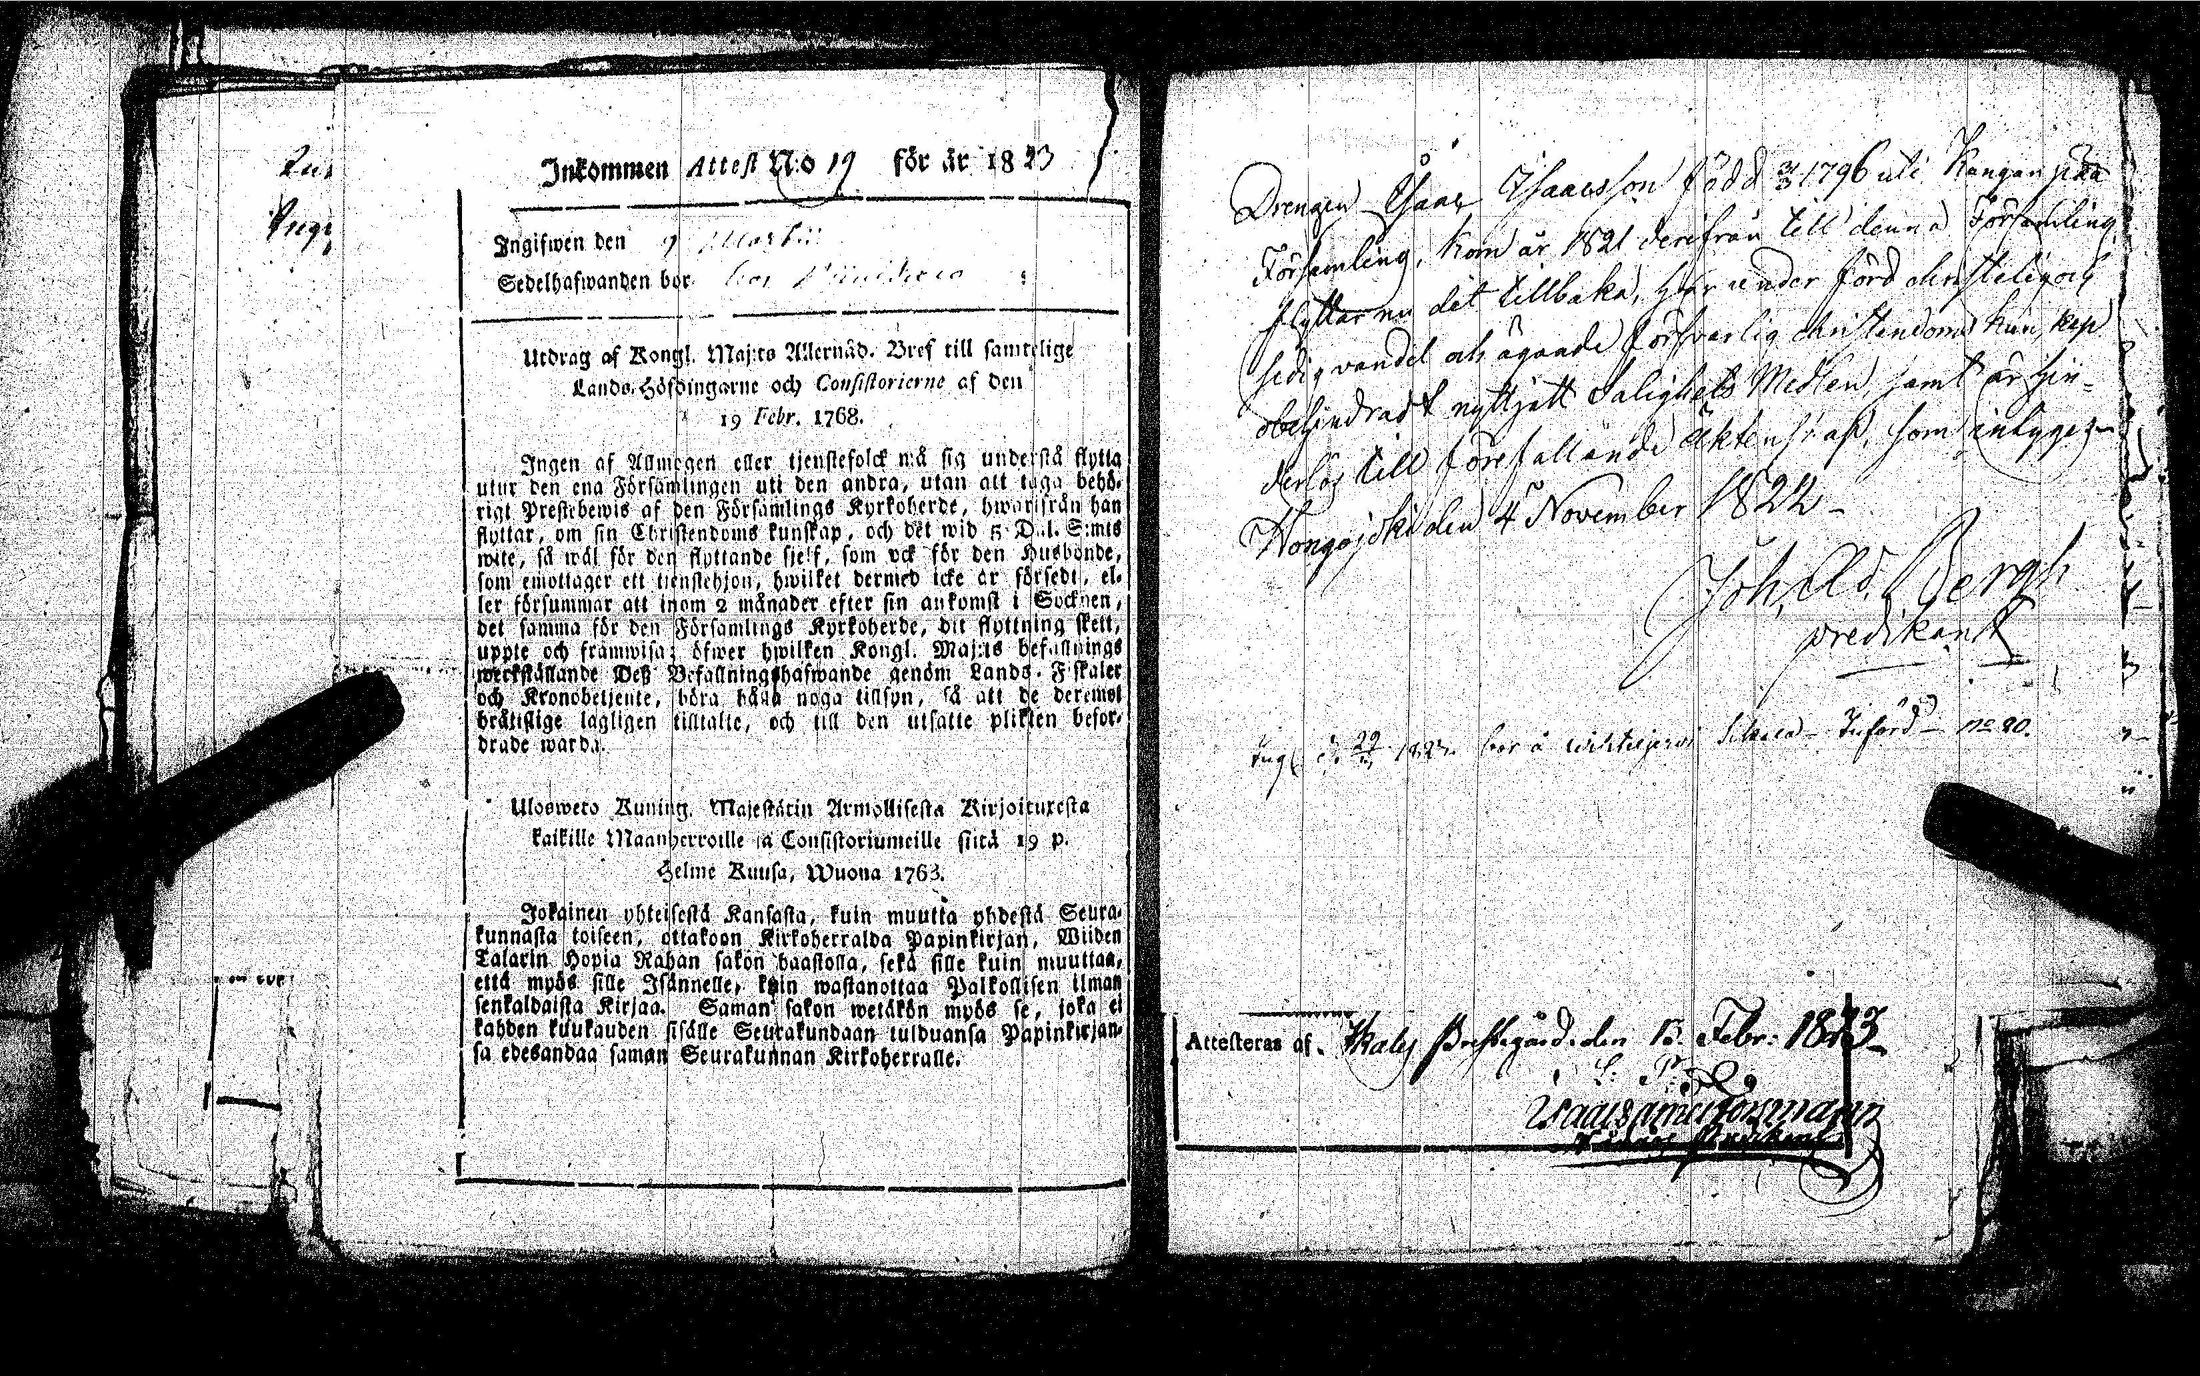 Inkommen Attest N:o 19 för år 1823
Ingifwen den 9
Sedelhafwanden bor
Utdrag af Kongl. Maj:ts Allernåd. Bref till samtelige
Lands-Höfdingarne och Consistorierne af den
19 Febr. 1768.
Ingen af Allmogen eller tjenstefolck må sig understå flytta
utur den ena Församlingen uti den andra, utan att taga behö-
rigt Prestebewis af den Församlings Kyrkoherde, hwarifrån han
flyttar, om sin Christendoms kunskap, och det wid 5 Dal. S:mts
wite, så wäl för den flyttande sjelf, som ock för den Husbonde,
som emottager ett tjenstehjon, hwilket dermed icke är försedt, el-
ler försummar att inom 2 månader efter sin ankomst i Socknen,
det samma för den Församlings Kyrkoherde, dit flyttning skett,
uppte och framwisa; öfwer hwilken Kongl. Maj:ts befallnings
werkställande Deß Befallningshafwande genom Lands-Fiskaler
och Kronobetjente, böra hålla noga tillsyn, så att de deremot
brättslige lagligen tilltalte, och till den utsatte plikten befor-
drade warda.
Ulosweto Kuning. Majestätin Armollisesta Kirjoituxesta
kaikille Maanherroille ja Consistoriumeille siitä 19 p.
Helme Kuusa, Wuona 1763.
Jokainen yhteisestä Kansasta, kuin muutta yhdestä Seura-
kunnasta toiseen, ottakoon Kirkoherralda Papinkirjan, Wiiden
Talarin Hopia Rahan sakon haastolla, sekä sille kuin muuttaa,
että myös sille Isännelle, kuin wastanottaa Palkollisen ilman
senkaldaista Kirjaa. Saman sakon wetäkön myös se, joka ei
kahden kuukauden sisälle Seurakundaan tulduansa Papinkirjan-
sa edesandaa saman Seurakunnan Kirkoherralle.
Drengen Isaac Isaacsson född 1796 uti Kangan
Församling, kom år 1821 derifrån till denna Församling,
flyttar nu dit tillbaka, har under förd christelig och
sedig vandel och ägande försvarlig christendoms kunskap
obehindradt nyttjatt Salighets Medlen, samt är hin-
derlös till förefallande äktenskap, som intygar
Hongojoki den 4 November 1822
Joh. Ad. Bergh
predikant
bor å Införd no 20.
Attesteras af. Ikalis Prestegård den 13 Febr: 1823